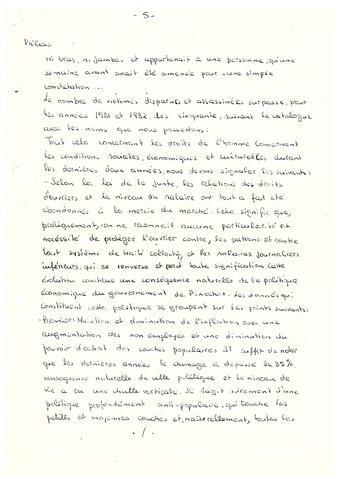 - 5 -
ni bras, ni jambes et appartenait à une personne, qu'une
semaine avant avait été amenée pour une simple
constatation ...
Le nombre de victimes disparues et assassinées surpasse, pour
les années 1981 et 1982, les cinquante, suivant le catalogue
avec les noms que nous possedons:
Tout cela concernant les droits de l'homme concernant
les conditions sociales, économiques et culturelles durant
les dernières deux années, nous devons signaler les suivants:
- Selon la loi de la Junte, les relations des droits
d'ouvriers et le niveau du salaire ont tout a fait été
abandonnés à la mercie du marché. Cela signifie que,
pratiquement, on ne reconnait aucune particularité et
nécessité de protéger l'ouvrier contre les patrons et contre
tout système de traité collectif, et les salaires journaliers
inférieurs, qui se renverse et perd toute signification. Cette
évolution constitue une conséquence naturelle de la politique
économique du gouvernement de Pinochet. Les données qui
constituent cette politique se groupent sur les points suivants:
- Premier: Maintien et diminution de l'inflation avec une
augmentation des non employés et une diminution du
pouvoir d'achat des couches populaires. Il suffit de noter
que les dernières années le chomage a depassé le 35%
consequence naturelle de cette politique et le niveau de
vie a eu une chutte verticale. Il s'agit surement d'une
politique profondément anti-populaire, qui touche les
petites et moyennes couches et, naturellement, toutes les